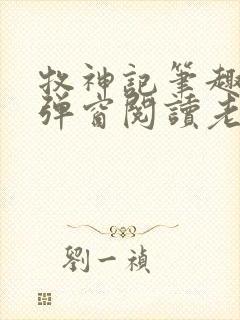 牧神記筆趣
彈窗閱讀老
劉一禎